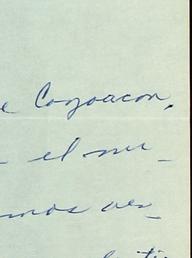 e Coyoacon,
- el mu-
mos ver-